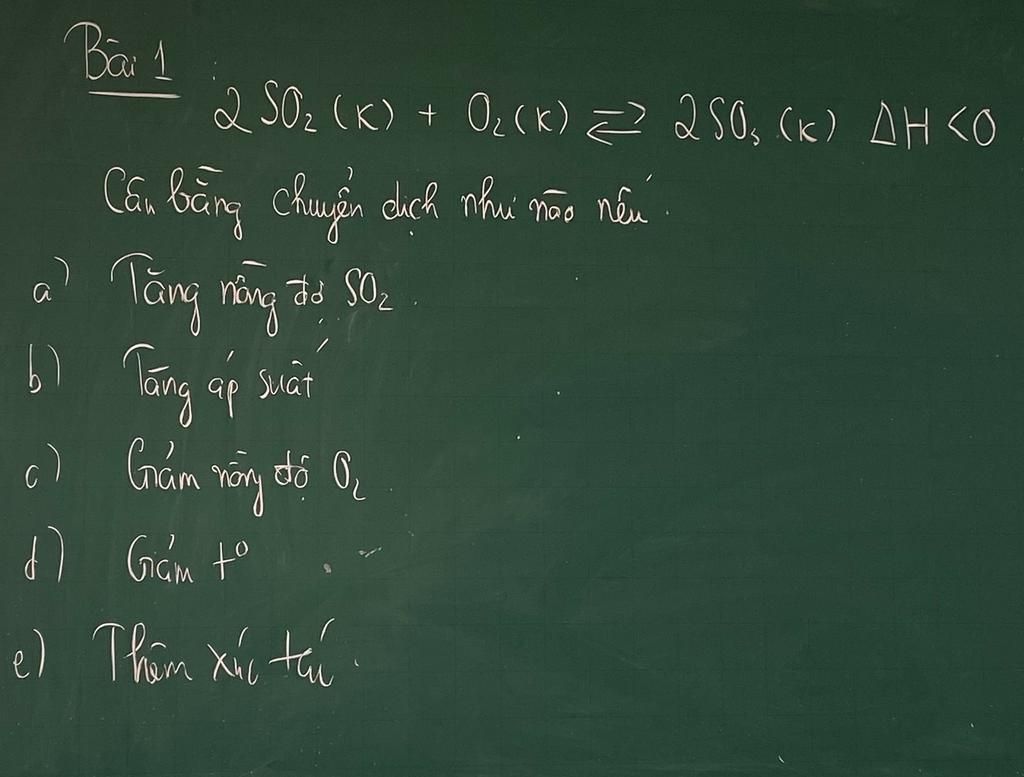 Bài 1
2SO₂ (K) + O₂ (K) ⇄ 2SO₃ (K) ΔH < 0
Cân bằng chuyển dịch như nào nếu
a) Tăng nồng độ SO₂.
b) Tăng áp suất
c) Giảm nồng độ O₂
d) Giảm t°
e) Thêm xúc tác.